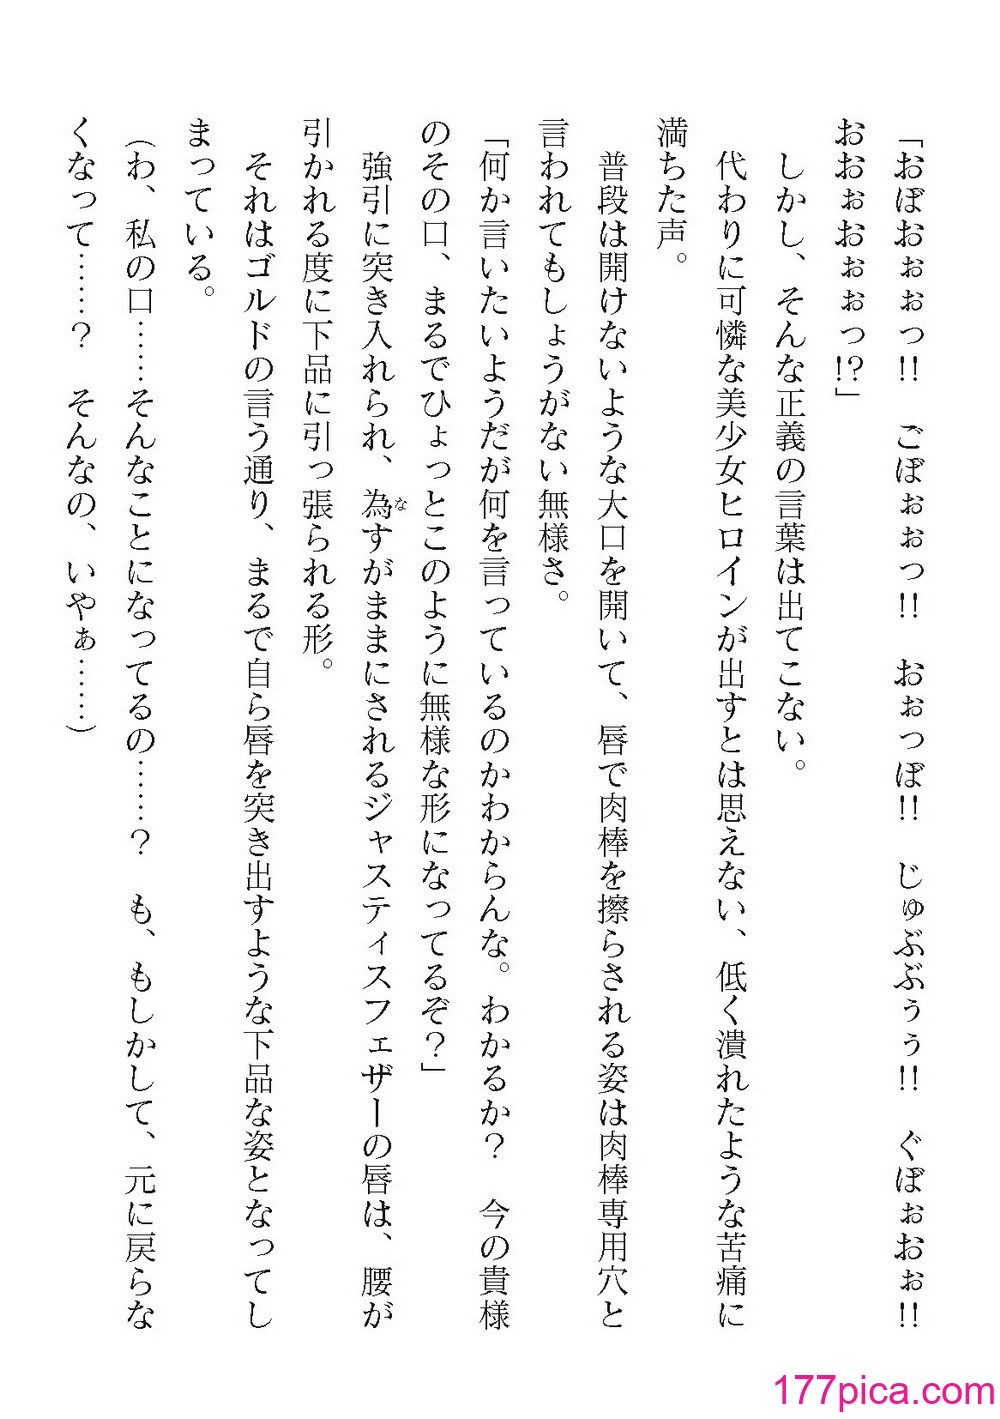 「おぼおぉぉっ!!　ごぼぉぉっ!!　おぉっぽ!!　じゅぶぶぅぅ!!　ぐぼぉおぉ!!
おおぉおぉぉっ!?」
しかし、そんな正義の言葉は出てこない。
代わりに可憐な美少女ヒロインが出すとは思えない、低く潰れたような苦痛に
満ちた声。
普段は開けないような大口を開いて、唇で肉棒を擦らされる姿は肉棒専用穴と
言われてもしょうがない無様さ。
「何か言いたいようだが何を言っているのかわからんな。わかるか？　今の貴様
のその口、まるでひょっとこのように無様な形になってるぞ？」
強引に突き入れられ、為（な）すがままにされるジャスティスフェザーの唇は、腰が
引かれる度に下品に引っ張られる形。
それはゴルドの言う通り、まるで自ら唇を突き出すような下品な姿となってし
まっている。
（わ、私の口……そんなことになってるの……？　も、もしかして、元に戻らな
くなって……？　そんなの、いやぁ……）
177pica.com